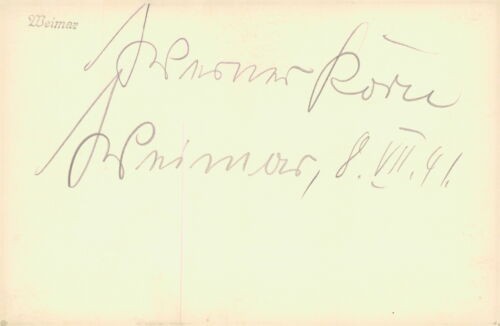 Weimar
Werner Körn
Weimar, 8. VII. 41.